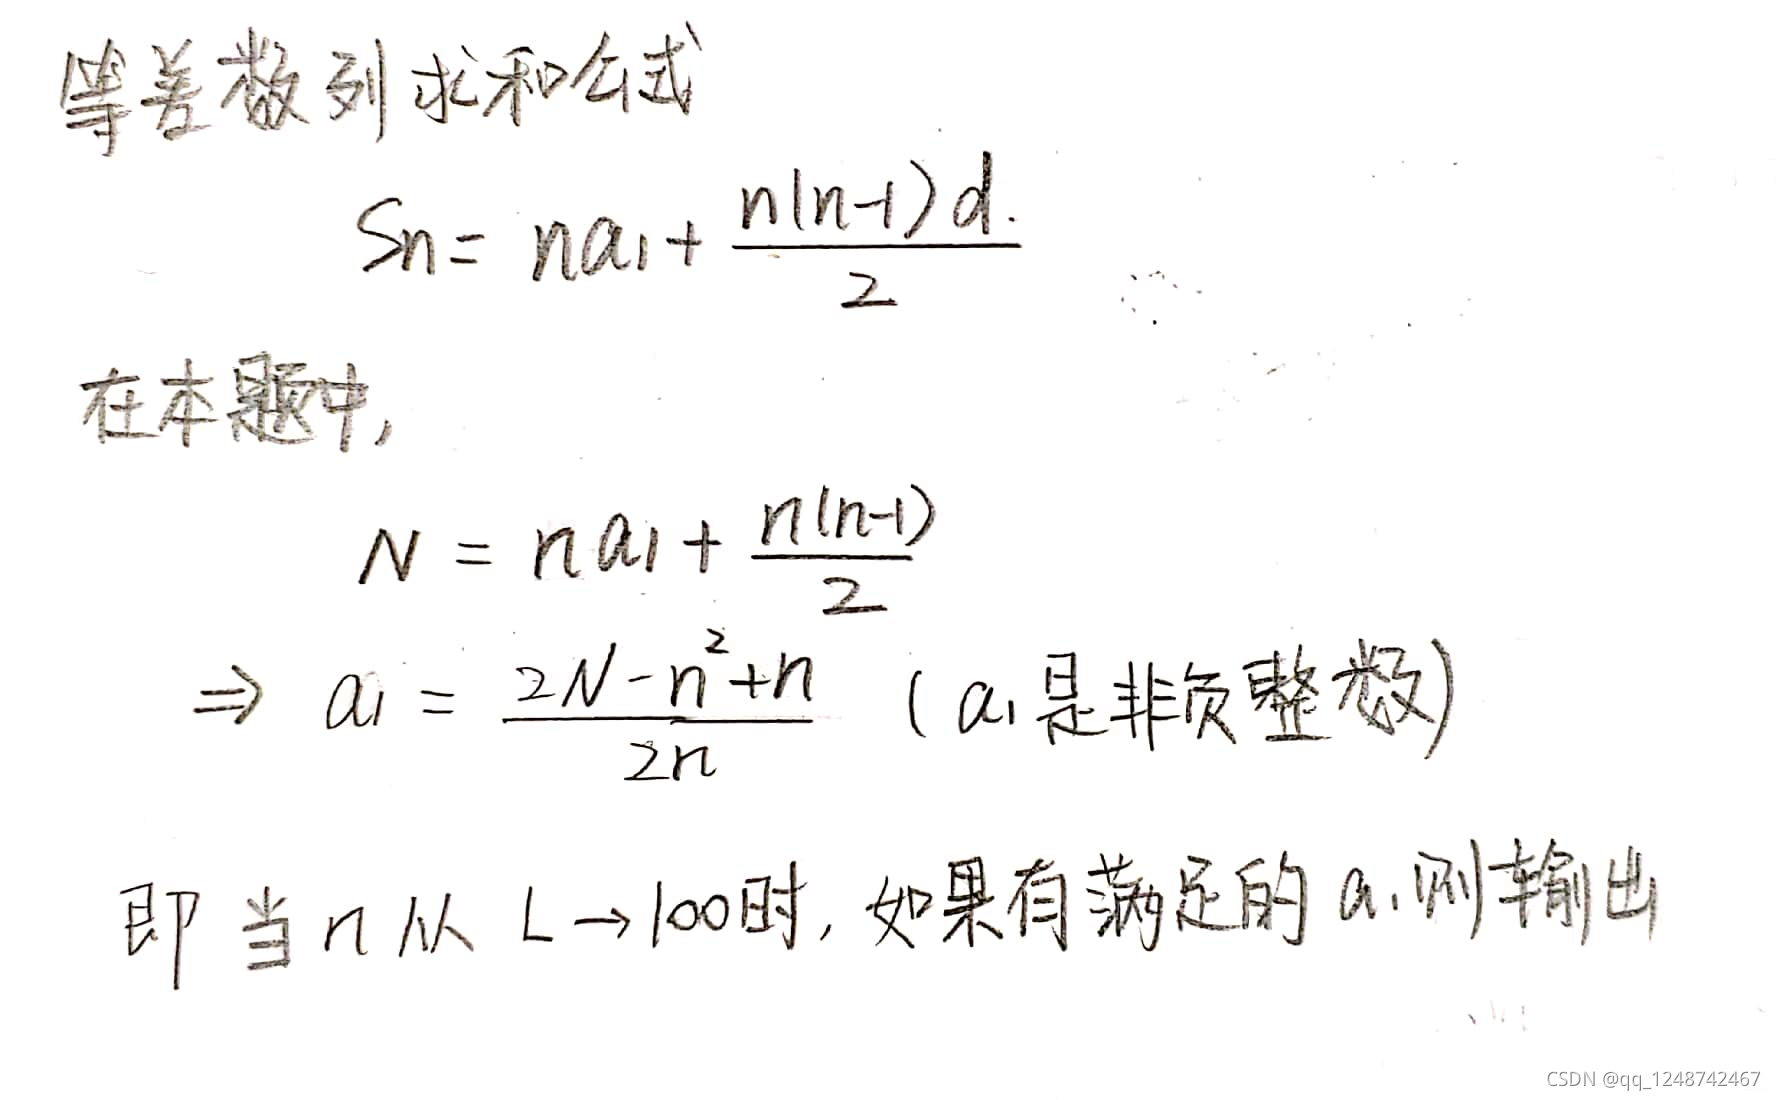 等差数列求和公式
Sn = na₁ + n(n-1)d. / 2
在本题中,
N = na₁ + n(n-1) / 2
⇒ a₁ = 2N-n²+n / 2n (a₁是非负整数)
即当n从 L→100时, 如果有满足的a₁则输出
CSDN @qq_1248742467